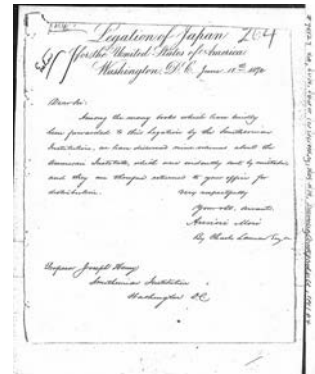 264
Legation of Japan
for the United States of America
Washington, D.C. June
Dear Sir:
Among the many books which have kindly
been forwarded to this Legation by the Smithsonian
Institution, we have discovered nine volumes about the
American Institute, which were evidently sent by mistake,
and they are therefore returned to your office for
distribution.
Very respectfully
Your obt. servant
Arinori Mori
By Charles Lanman
Professor Joseph Henry
Smithsonian Institution
Washington D.C.